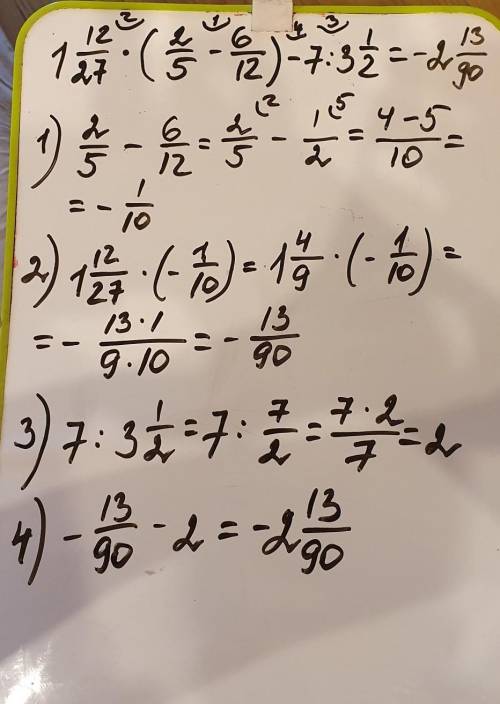 1 12/27 · (2/5 - 6/12) - 7 : 3 1/2 = -2 13/90
1) 2/5 - 6/12 = 2/5 - 1/2 = 4-5/10 =
= - 1/10
2) 1 12/27 · (- 1/10) = 1 4/9 · (- 1/10) =
= - 13·1/9·10 = - 13/90
3) 7 : 3 1/2 = 7 : 7/2 = 7·2/7 = 2
4) - 13/90 - 2 = -2 13/90